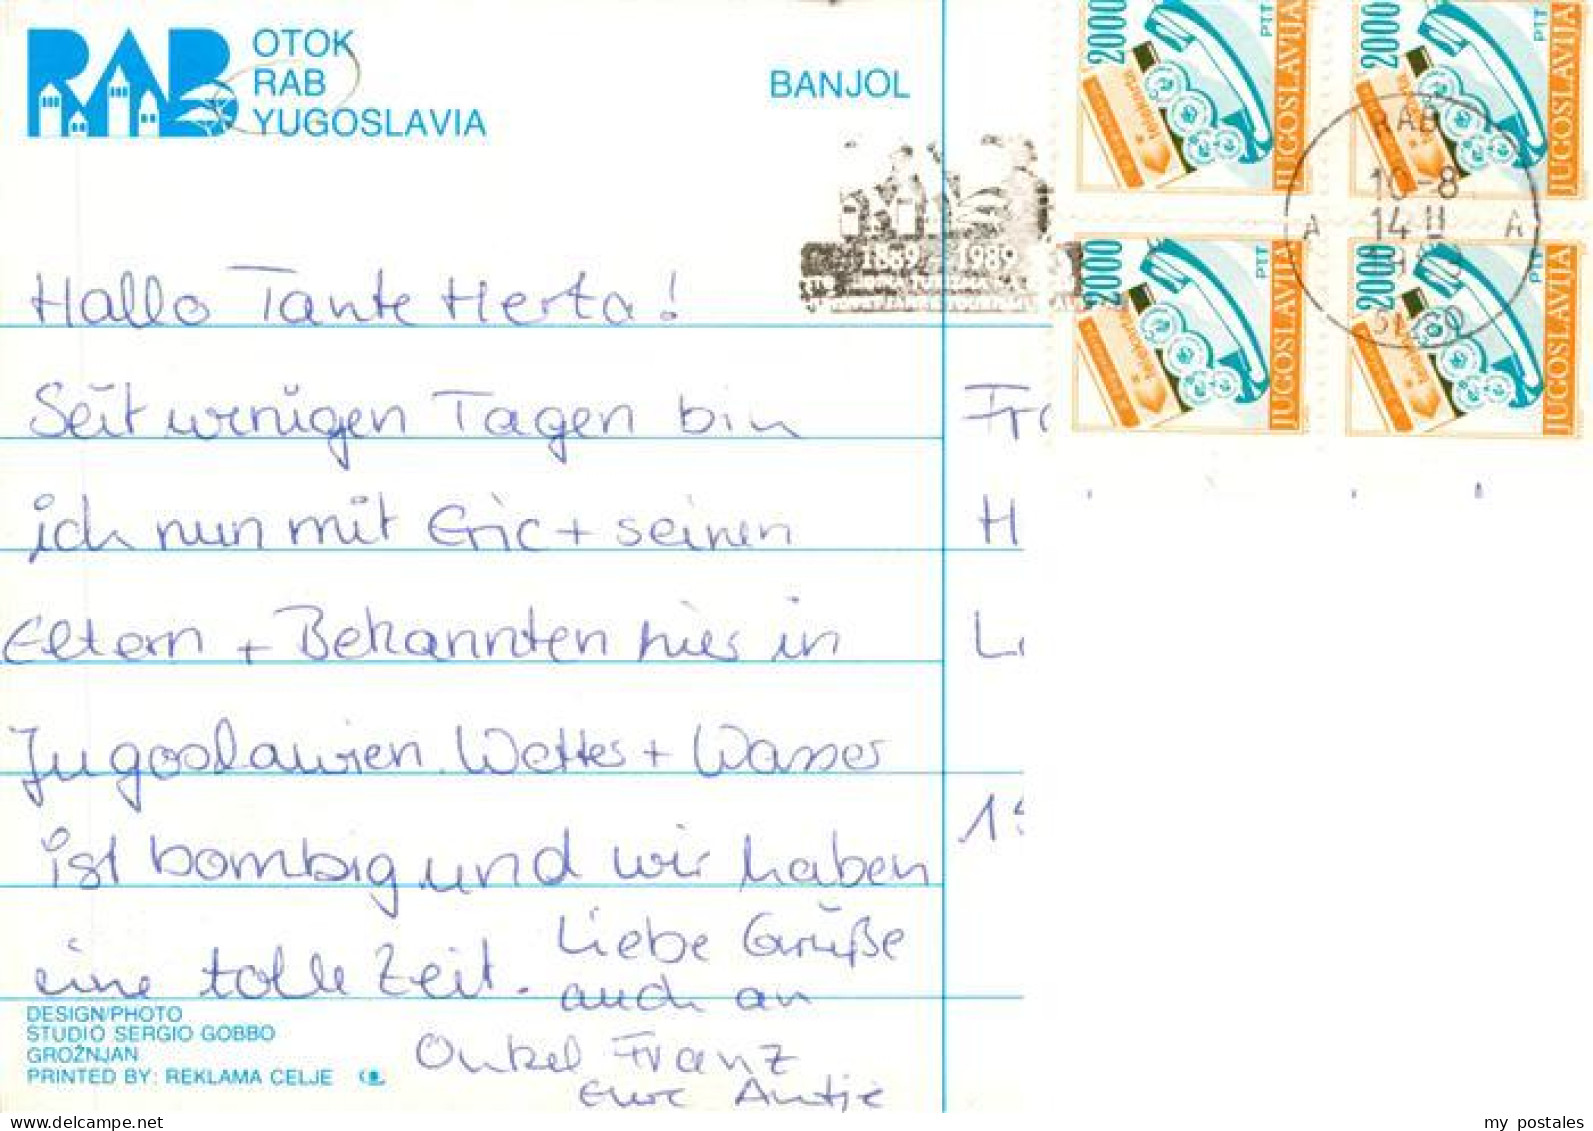 RAB
OTOK
RAB
YUGOSLAVIA
BANJOL
2000
PTT
JUGOSLAVIJA
2000
PTT
JUGOSLAVIJA
2000
PTT
JUGOSLAVIJA
2000
PTT
JUGOSLAVIJA
RAB
10-8
14 II
A A
1889 1989
Hallo Tante Herta!
Seit wenigen Tagen bin
ich nun mit Eric + seinen
Eltern + Bekannten hier in
Jugoslawien. Wetter + Wasser
ist bombig und wir haben
eine tolle Zeit.
Liebe Grüße
auch an
Onkel Franz
Eure Antje
Fr
H
L
1
DESIGN/PHOTO
STUDIO SERGIO GOBBO
GROŽNJAN
PRINTED BY: REKLAMA CELJE
my postales